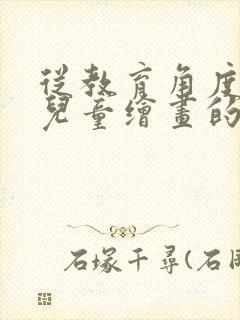 從教育角度
兒童繪畫的
石塚千尋(石田